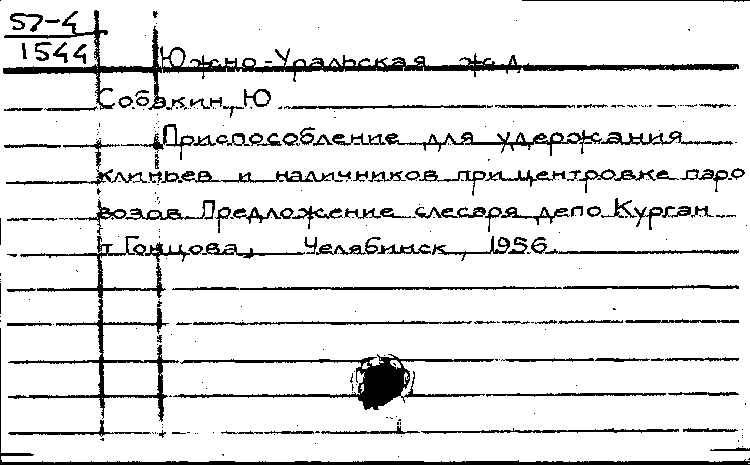 57-4
1544
Южно-Уральская ж.д.
Собакин, Ю
Приспособление для удержания
клиньев и наличников при центровке паро
возов. Предложение слесаря депо Курган
т. Гонцова, Челябинск, 1956.